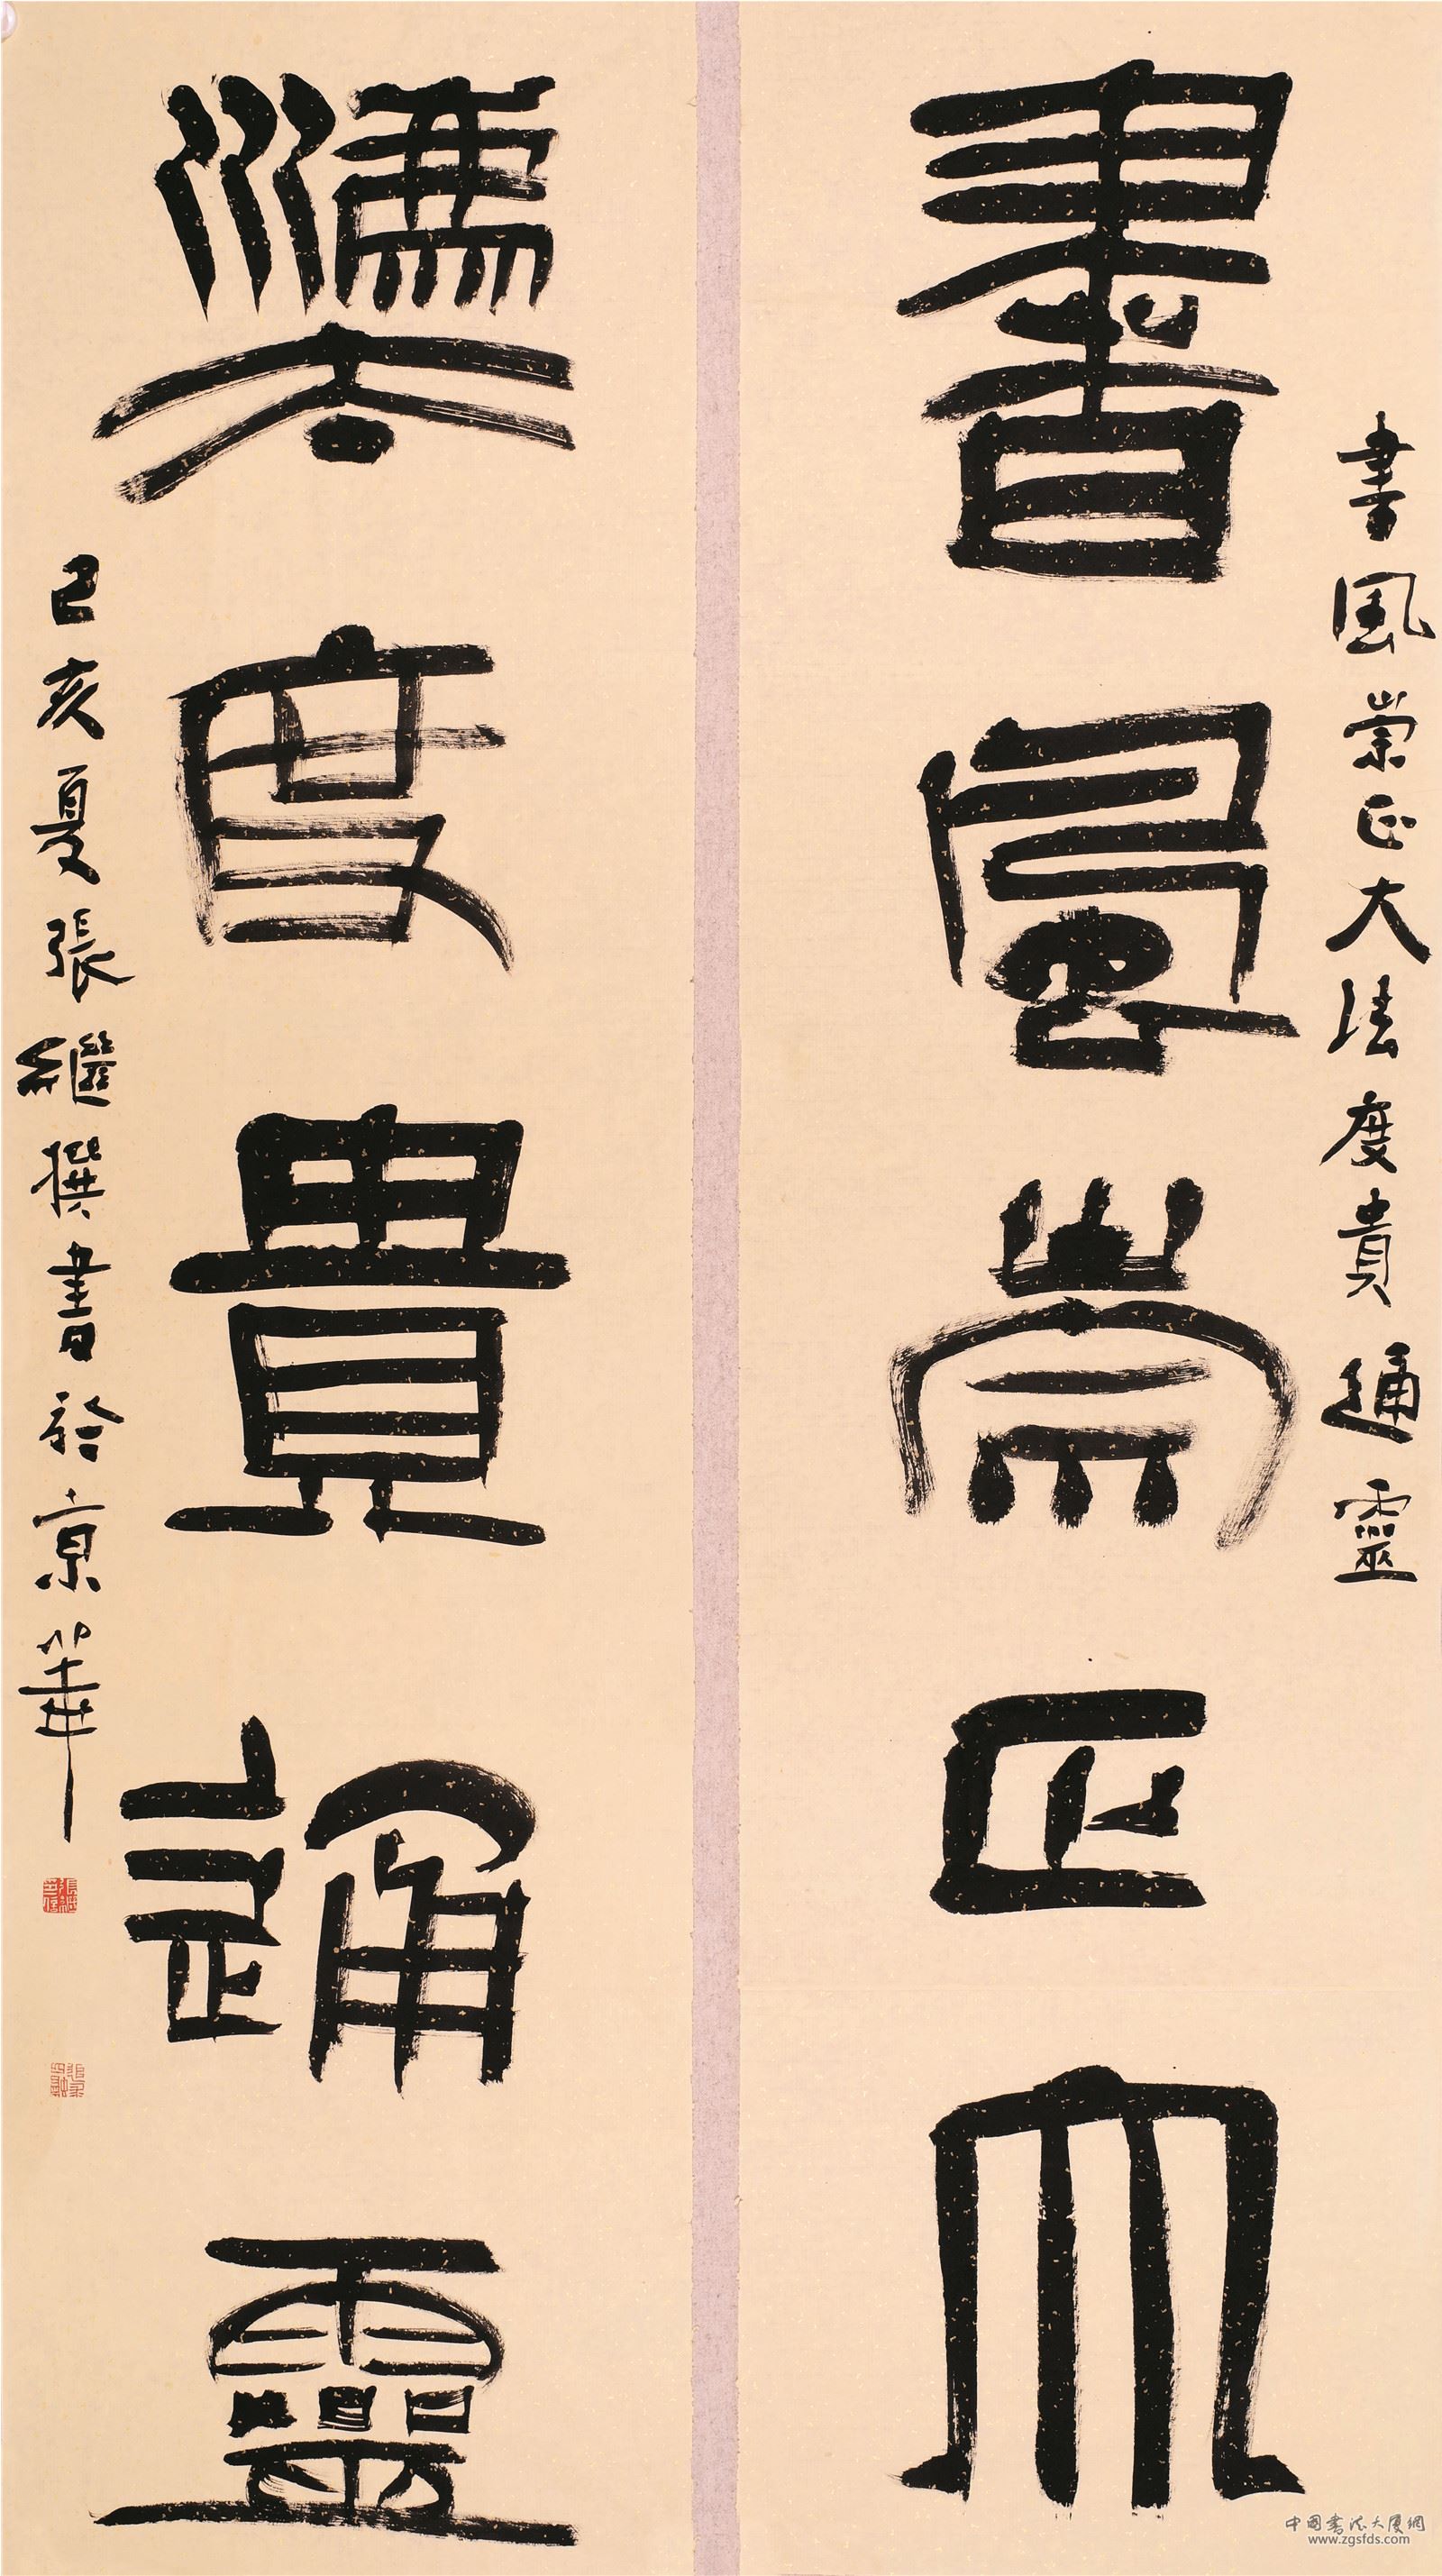 書風崇正大法度貴通靈
書風崇正大
灋度貴通靈
己亥夏張繼撰書於京華
中国书法大厦網
www.zgsfds.com